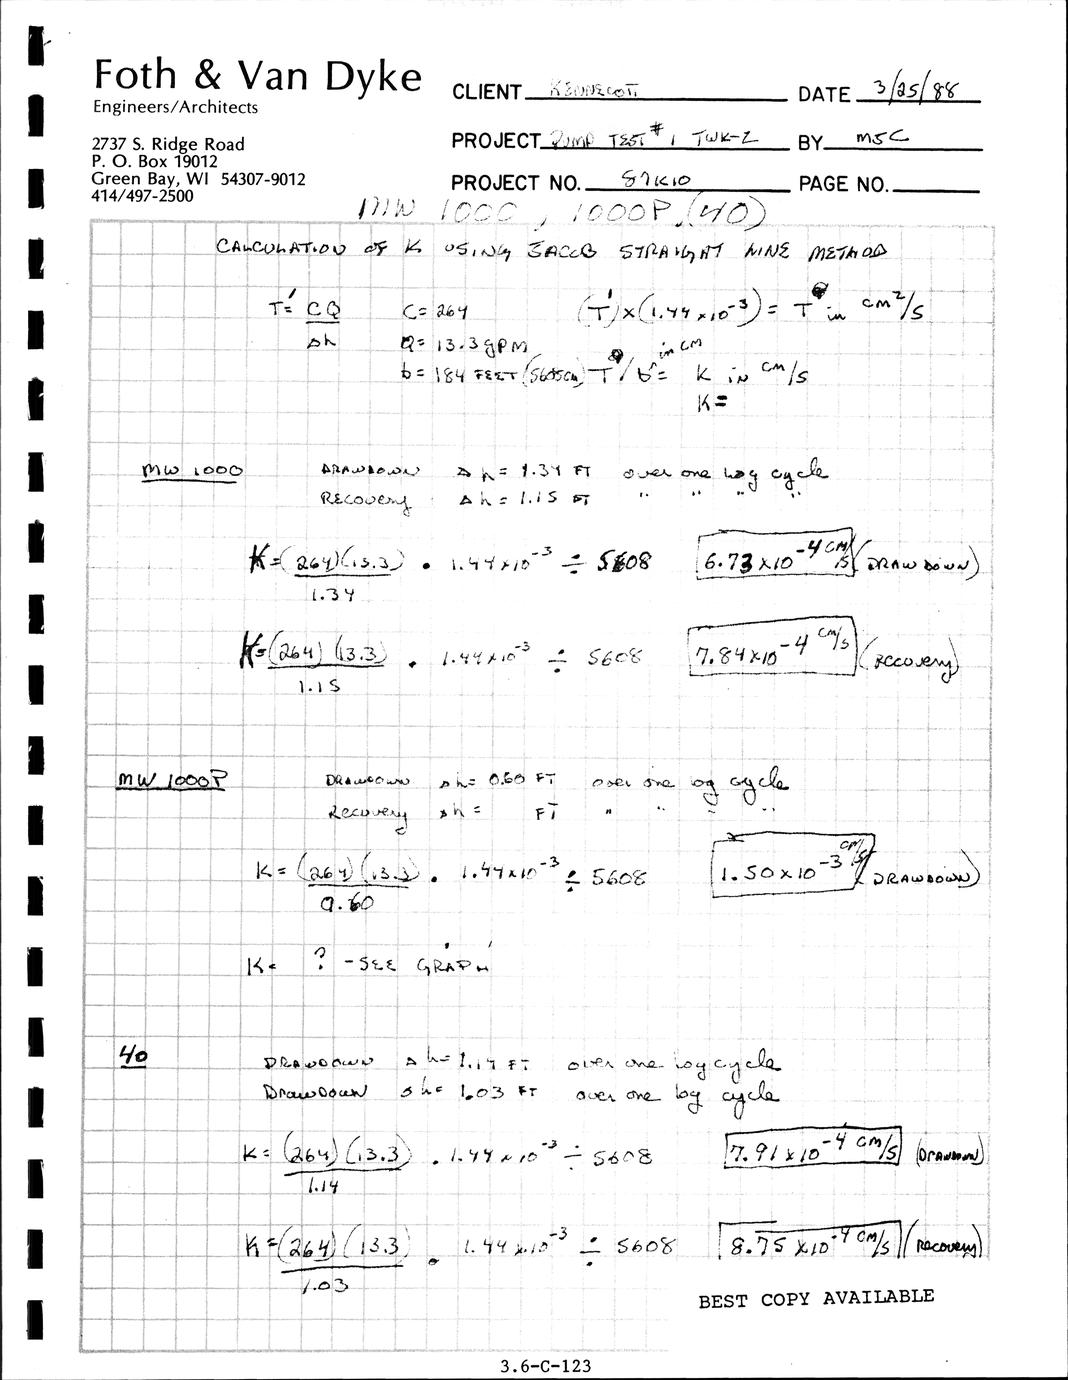 Foth & Van Dyke
Engineers/Architects
2737 S. Ridge Road
P. O. Box 19012
Green Bay, WI 54307-9012
414/497-2500
CLIENT KENNECOTT DATE 3/25/88
PROJECT PUMP TEST #1 TWK-2 BY MJC
PROJECT NO. 87K10 PAGE NO.
MW 1000, 1000P, (40)
CALCULATION OF K USING JACOB STRAIGHT LINE METHOD
T' = CQ C = 264 (T') x (1.44 x 10^-3) = T in cm²/s
Δh Q = 13.3 gpm
b = 184 FEET (5608cm) T / b in cm = K in cm/s
K =
MW 1000 DRAWDOWN Δh = 1.34 FT over one log cycle
RECOVERY Δh = 1.15 FT " " " "
K = (264)(13.3) · 1.44x10^-3 ÷ 5608 6.73 x 10^-4 cm/s (DRAWDOWN)
1.34
K = (264)(13.3) · 1.44x10^-3 ÷ 5608 7.84x10^-4 cm/s (RECOVERY)
1.15
MW 1000P DRAWDOWN Δh = 0.60 FT over one log cycle
Recovery Δh = FT " " " "
K = (264)(13.3) · 1.44x10^-3 ÷ 5608 1.50 x 10^-3 cm/s (DRAWDOWN)
0.60
K = ? - SEE GRAPH
40 DRAWDOWN Δh = 1.14 FT over one log cycle
DrawDown Δh = 1.03 FT over one log cycle
K = (264)(13.3) · 1.44 x 10^-3 ÷ 5608 7.91 x 10^-4 cm/s (DRAWDOWN)
1.14
K = (264)(13.3) · 1.44 x 10^-3 ÷ 5608 8.75 x 10^-4 cm/s (Recovery)
1.03
BEST COPY AVAILABLE
3.6-C-123